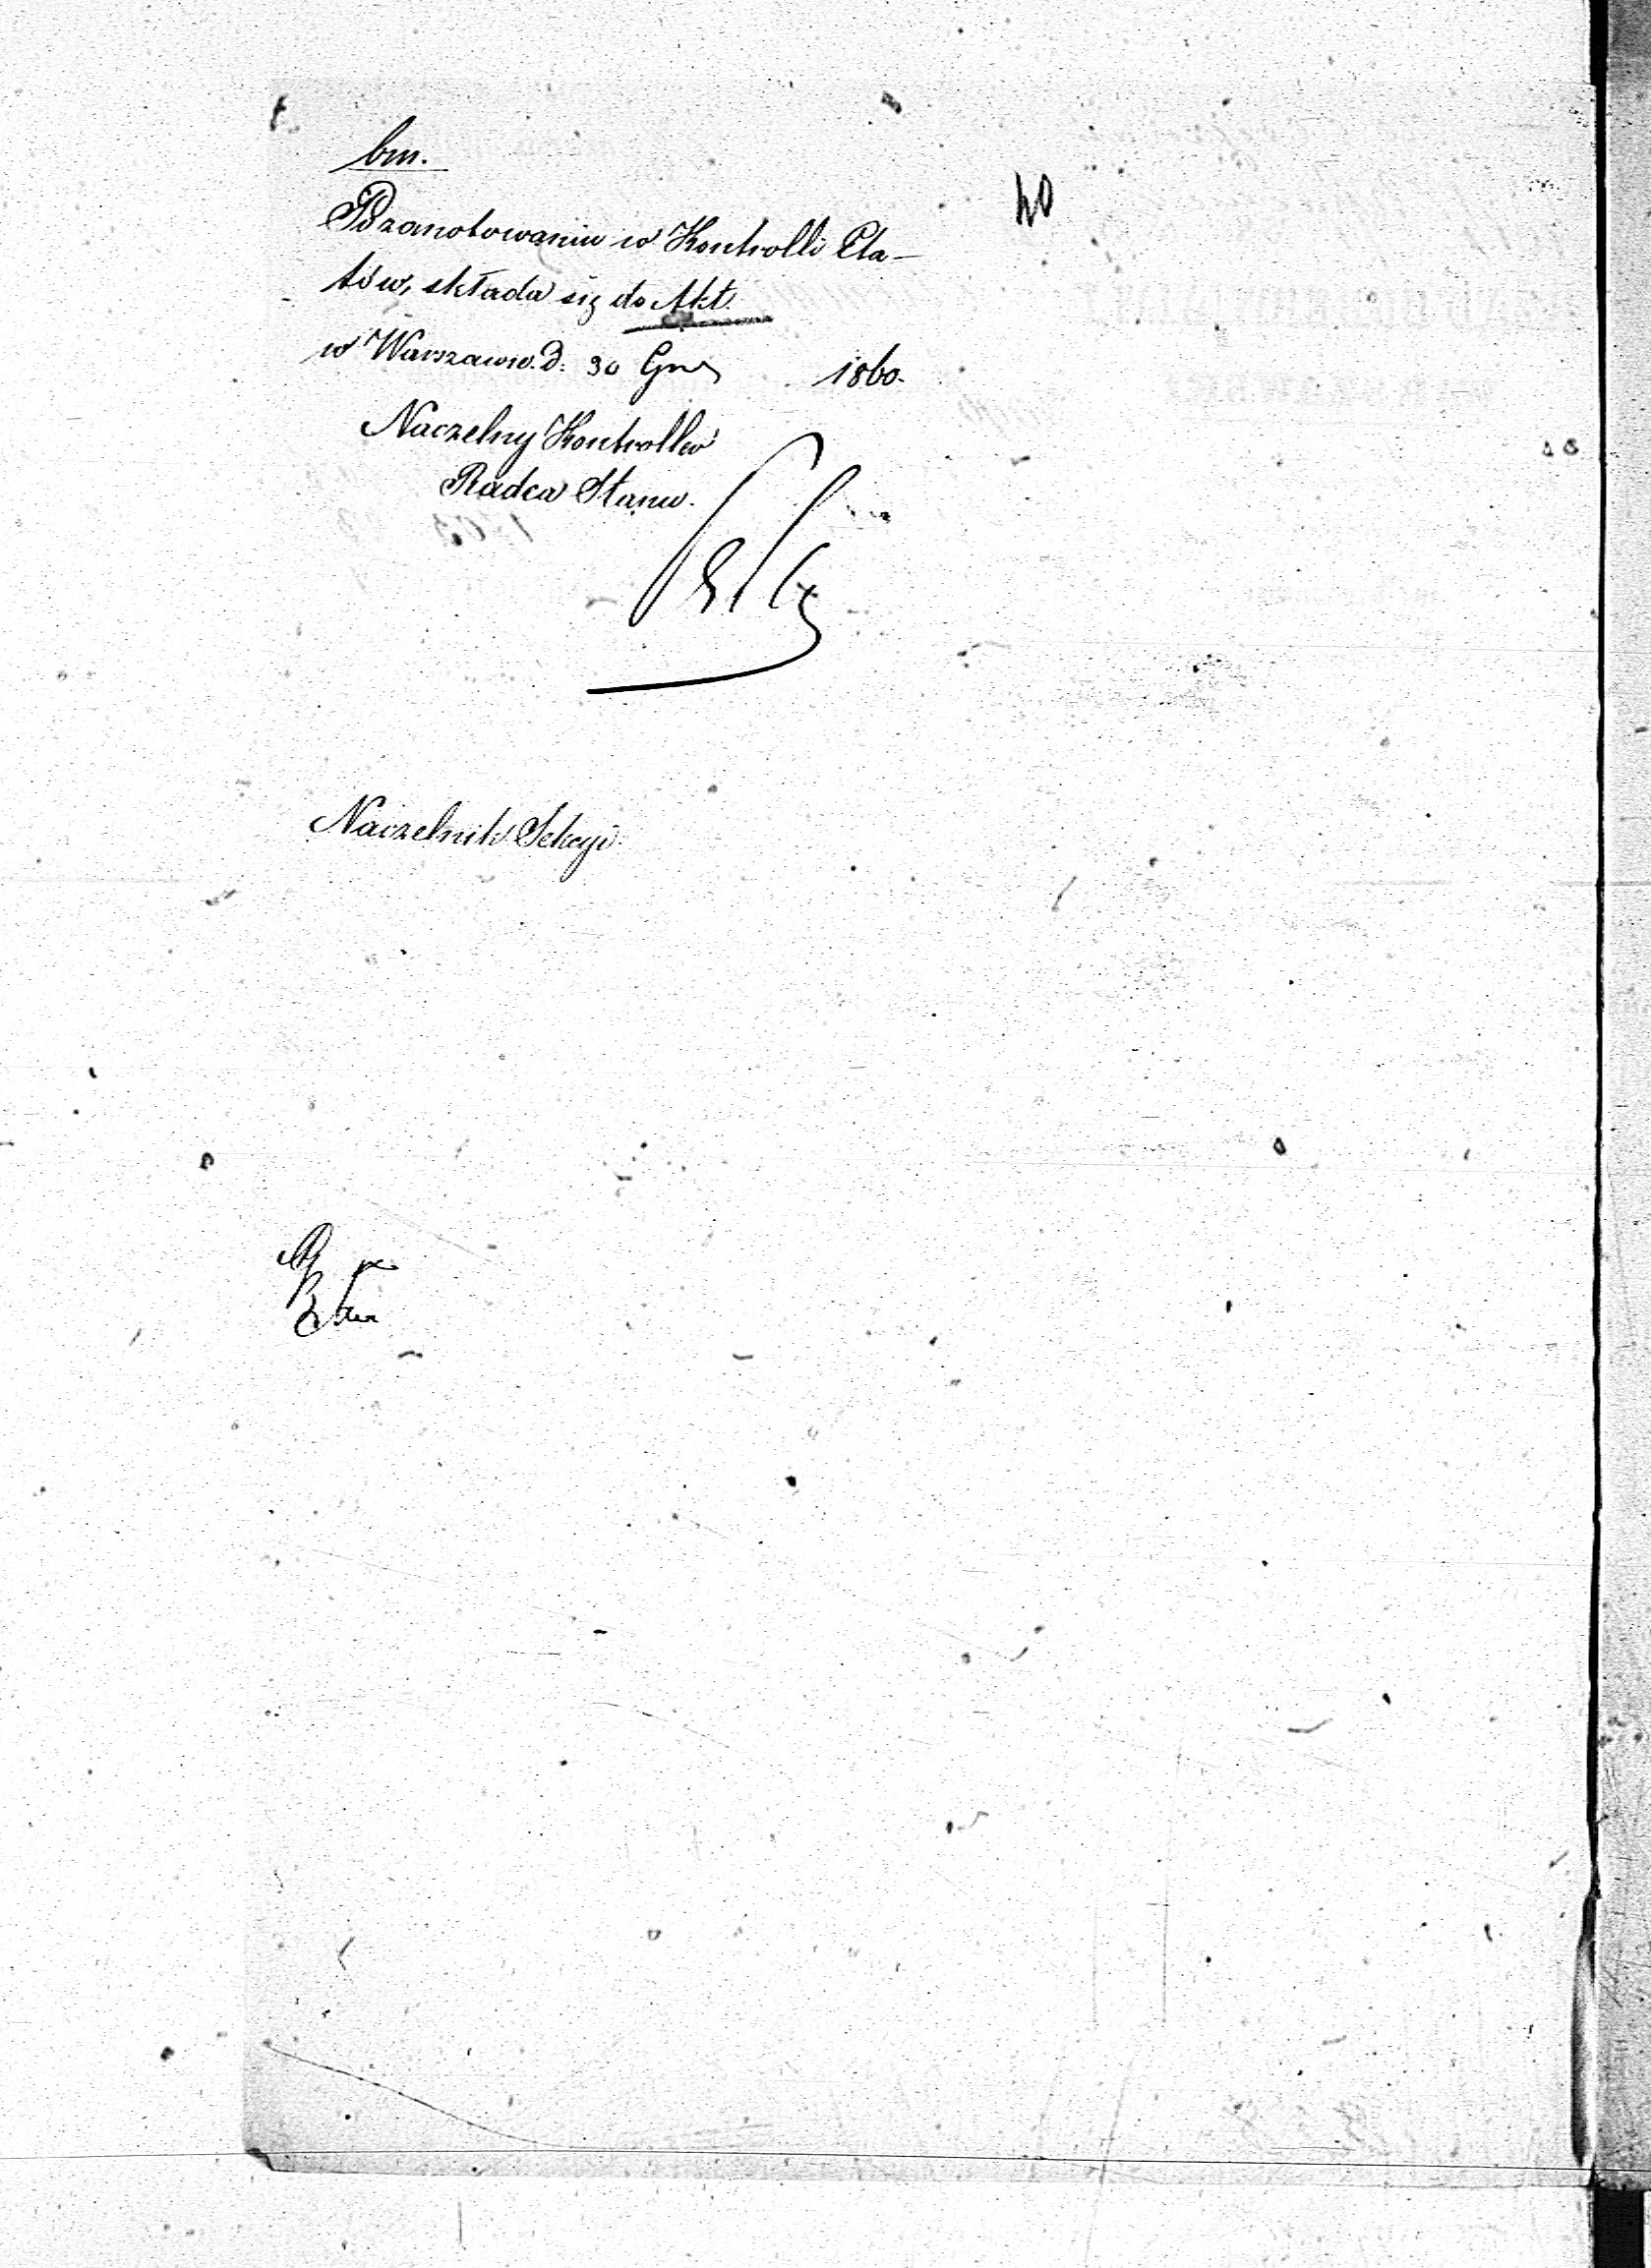 bm.
40
Po zanotowaniu w Kontrolli Eta-
tów, składa się do Akt.
w Warszawie D. 30 1860.
Naczelny Kontroller
Radca Stanu.
Naczelnik Sekcyi.